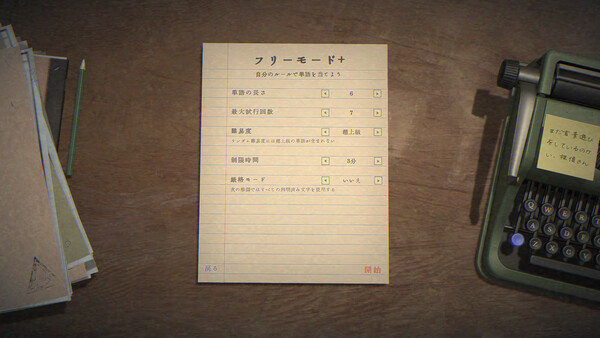 フリーモード+
自分のルールで単語を当てよう
単語の長さ 6
最大試行回数 7
難易度 超上級
ランダム難易度には超上級の単語が含まれない
制限時間 5分
厳格モード いいえ
次の推測ではすべての判明済み文字を使用する
戻る 開始
まだ言葉遊び
をしているのかい
、探偵さん